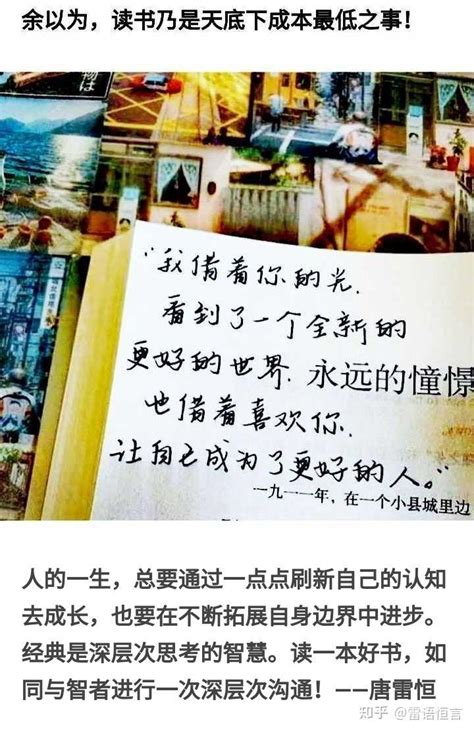 余以为，读书乃是天底下成本最低之事！
物は
“我借着你的光，
看到了一个全新的
更好的世界，永远的憧憬
也借着喜欢你，
让自己成为了更好的人。”
一九一一年，在一个小县城里边
人的一生，总要通过一点点刷新自己的认知
去成长，也要在不断拓展自身边界中进步。
经典是深层次思考的智慧。读一本好书，如
同与智者进行一次深层次沟通！——唐雷恒
知乎 @雷语恒言